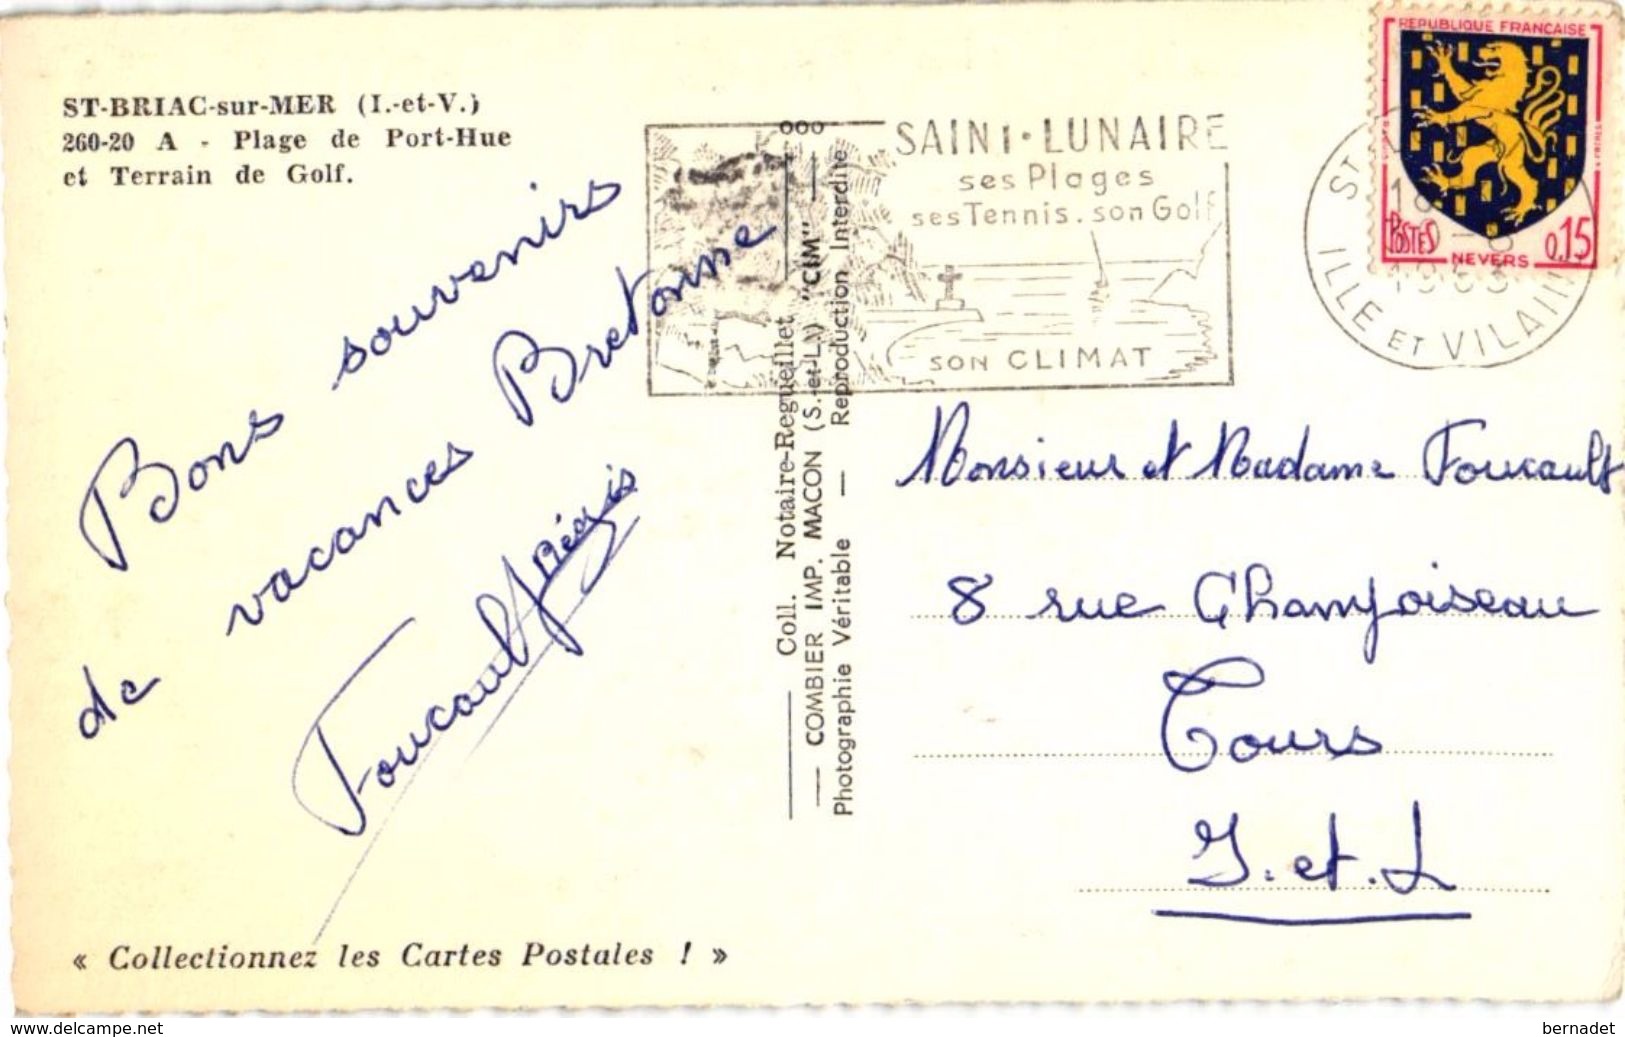 ST-BRIAC-sur-MER (I.-et-V.)
260-20 A - Plage de Port-Hue
et Terrain de Golf.
Bons souvenirs
de vacances Bretonne
Foucault Régis
« Collectionnez les Cartes Postales ! »
Coll. Notaire-Regueillet
COMBIER IMP. MACON (S.-et-L.) "CIM"
Photographie Véritable — Reproduction Interdite
SAINT-LUNAIRE
ses Plages
ses Tennis. son Golf
SON CLIMAT
REPUBLIQUE FRANÇAISE
POSTES
NEVERS
0,15
ST
1963
ILLE ET VILAINE
Monsieur et Madame Foucault
8 rue Chamfoiseau
Tours
I. et. L
www.delcampe.net
bernadet